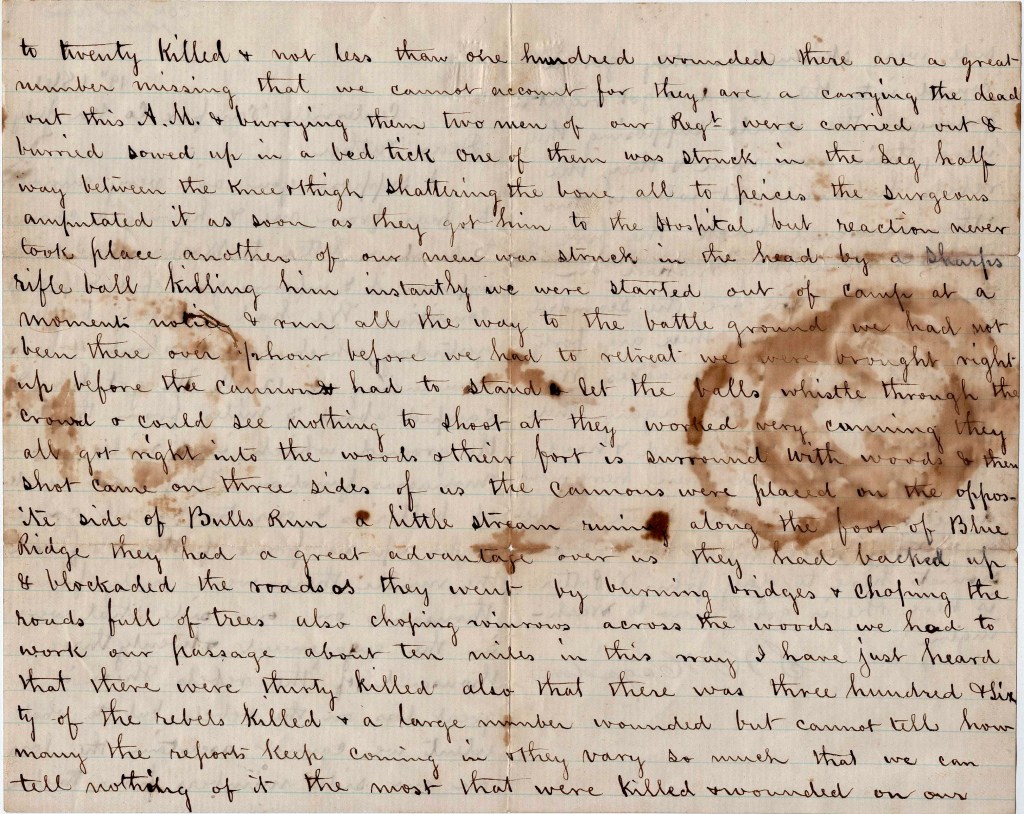 to twenty killed & not less than one hundred wounded there are a great
number missing that we cannot account for they are a carrying the dead
out this A.M. & burrying them two men of our Regt were carried out &
burried sowed up in a bed tick one of them was struck in the leg half
way between the knee & thigh shattering the bone all to peices the surgeons
amputated it as soon as they got him to the Hospital but reaction never
took place another of our men was struck in the head by a sharps
rifle ball killing him instantly we were started out of camp at a
moments notice & run all the way to the battle ground we had not
been there over hour before we had to retreat we were brought right
up before the cannons & had to stand & let the balls whistle through the
crowd & could see nothing to shoot at they worked very cunning they
all got right into the woods & their fort is surround with woods & them
shot came on three sides of us the cannons were placed on the oppos-
ite side of Bulls Run a little stream runing along the foot of Blue
Ridge they had a great advantage over us they had backed up
& blockaded the roads as they went by burning bridges & choping the
roads full of trees also choping winrows across the woods we had to
work our passage about ten miles in this way I have just heard
that there were thirty killed also that there was three hundred & six
ty of the rebels killed & a large number wounded but cannot tell how
many the reports keep coming in & they vary so much that we can
tell nothing of it the most that were killed & wounded on our